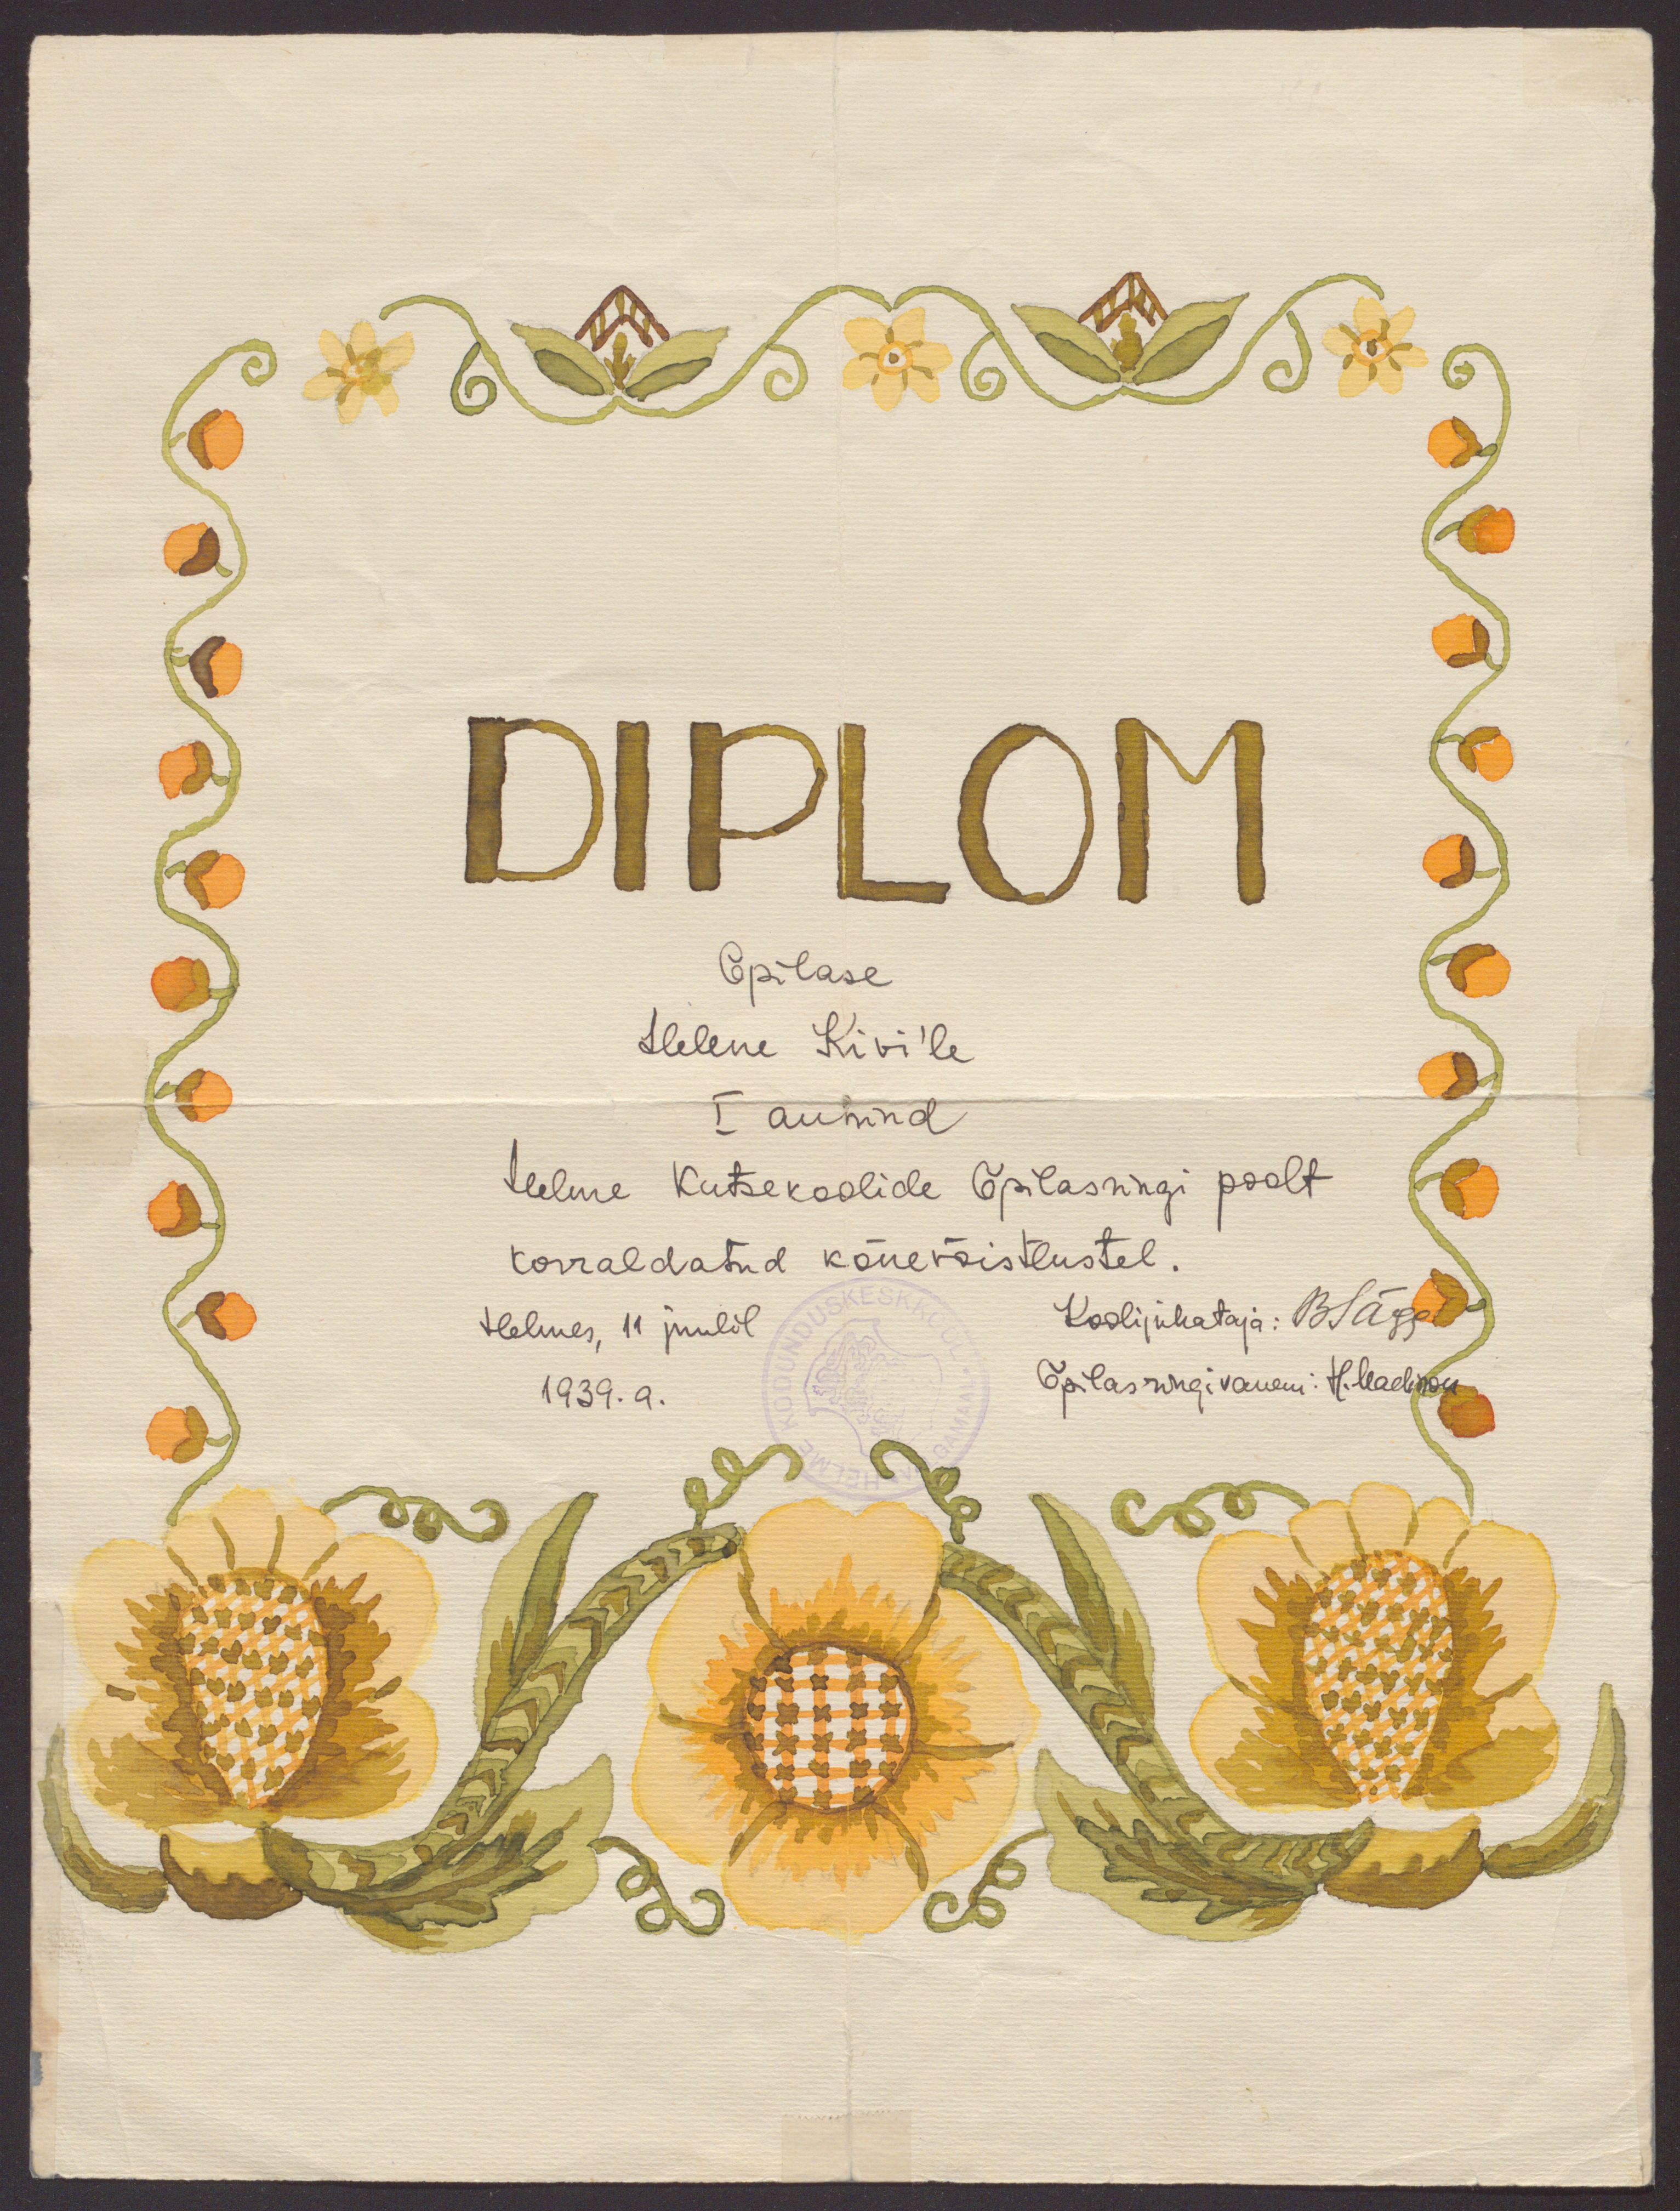 DIPLOM
Õpilase
Helene Kivi'le
I auhind
Helme Kutsekoolide Õpilasringi poolt
korraldatud kõnevõistlustel.
Helmes, 11 juulil
1939. a.
Koolijuhataja: B Sägg
Õpilasringivanem: H.
HELME KODUNDUSKESKKOOL